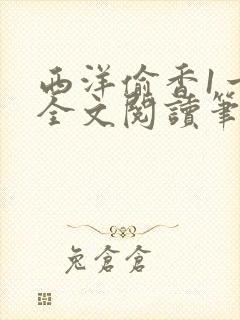 西洋偷香1一
全文閱讀筆
兔倉倉